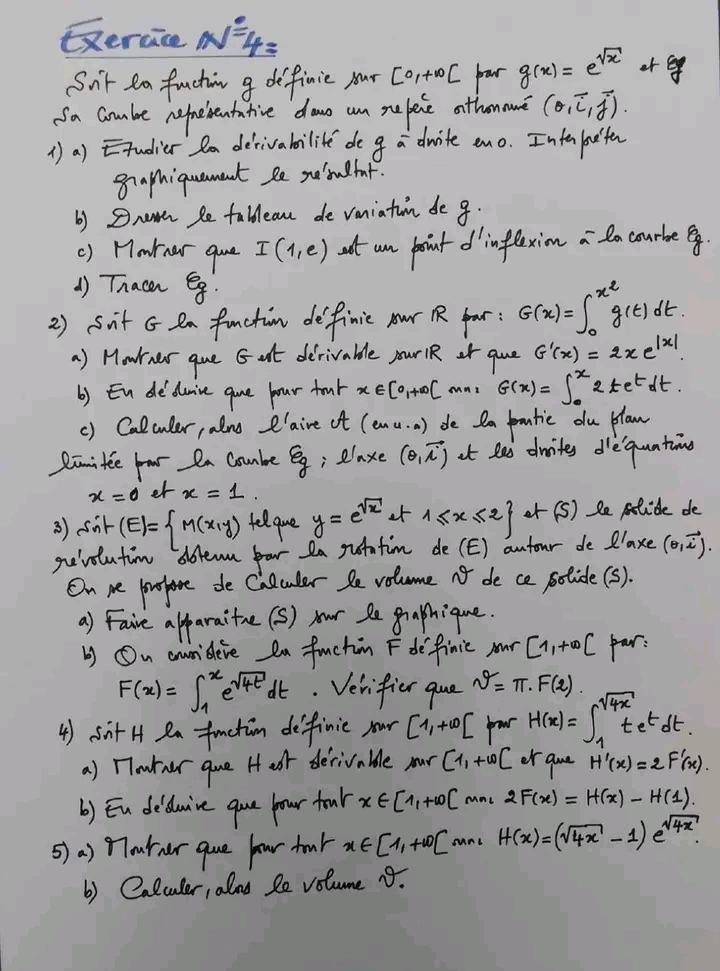 Exercice N°4:
Soit la fonction g définie sur [0,+∞[ par g(x) = e^√x et ℰg
sa courbe représentative dans un repère orthonormé (o,i⃗,j⃗).
1) a) Etudier la dérivabilité de g à droite en 0. Interpréter
graphiquement le résultat.
b) Dresser le tableau de variation de g.
c) Montrer que I(1,e) est un point d'inflexion à la courbe ℰg.
d) Tracer ℰg.
2) Soit G la fonction définie sur ℝ par : G(x) = ∫₀^x² g(t) dt.
a) Montrer que G est dérivable sur ℝ et que G'(x) = 2x e^|x|.
b) En déduire que pour tout x ∈ [0,+∞[ on a : G(x) = ∫₀^x 2t e^t dt.
c) Calculer, alors l'aire A (en u.a) de la partie du plan
limitée par la courbe ℰg ; l'axe (o,i⃗) et les droites d'équations
x = 0 et x = 1.
3) Soit (E) = { M(x,y) tel que y = e^√x et 1 ≤ x ≤ 2 } et (S) le solide de
révolution obtenu par la rotation de (E) autour de l'axe (o,i⃗).
On se propose de Calculer le volume 𝒱 de ce solide (S).
a) Faire apparaitre (S) sur le graphique.
b) On considère la fonction F définie sur [1,+∞[ par :
F(x) = ∫₁^x e^√4t dt . Vérifier que 𝒱 = π. F(2).
4) Soit H la fonction définie sur [1,+∞[ par H(x) = ∫₁^√4x t e^t dt.
a) Montrer que H est dérivable sur [1,+∞[ et que H'(x) = 2 F'(x).
b) En déduire que pour tout x ∈ [1,+∞[ on a : 2 F(x) = H(x) - H(1).
5) a) Montrer que pour tout x ∈ [1,+∞[ on a : H(x) = (√4x - 1) e^√4x.
b) Calculer, alors le volume 𝒱.